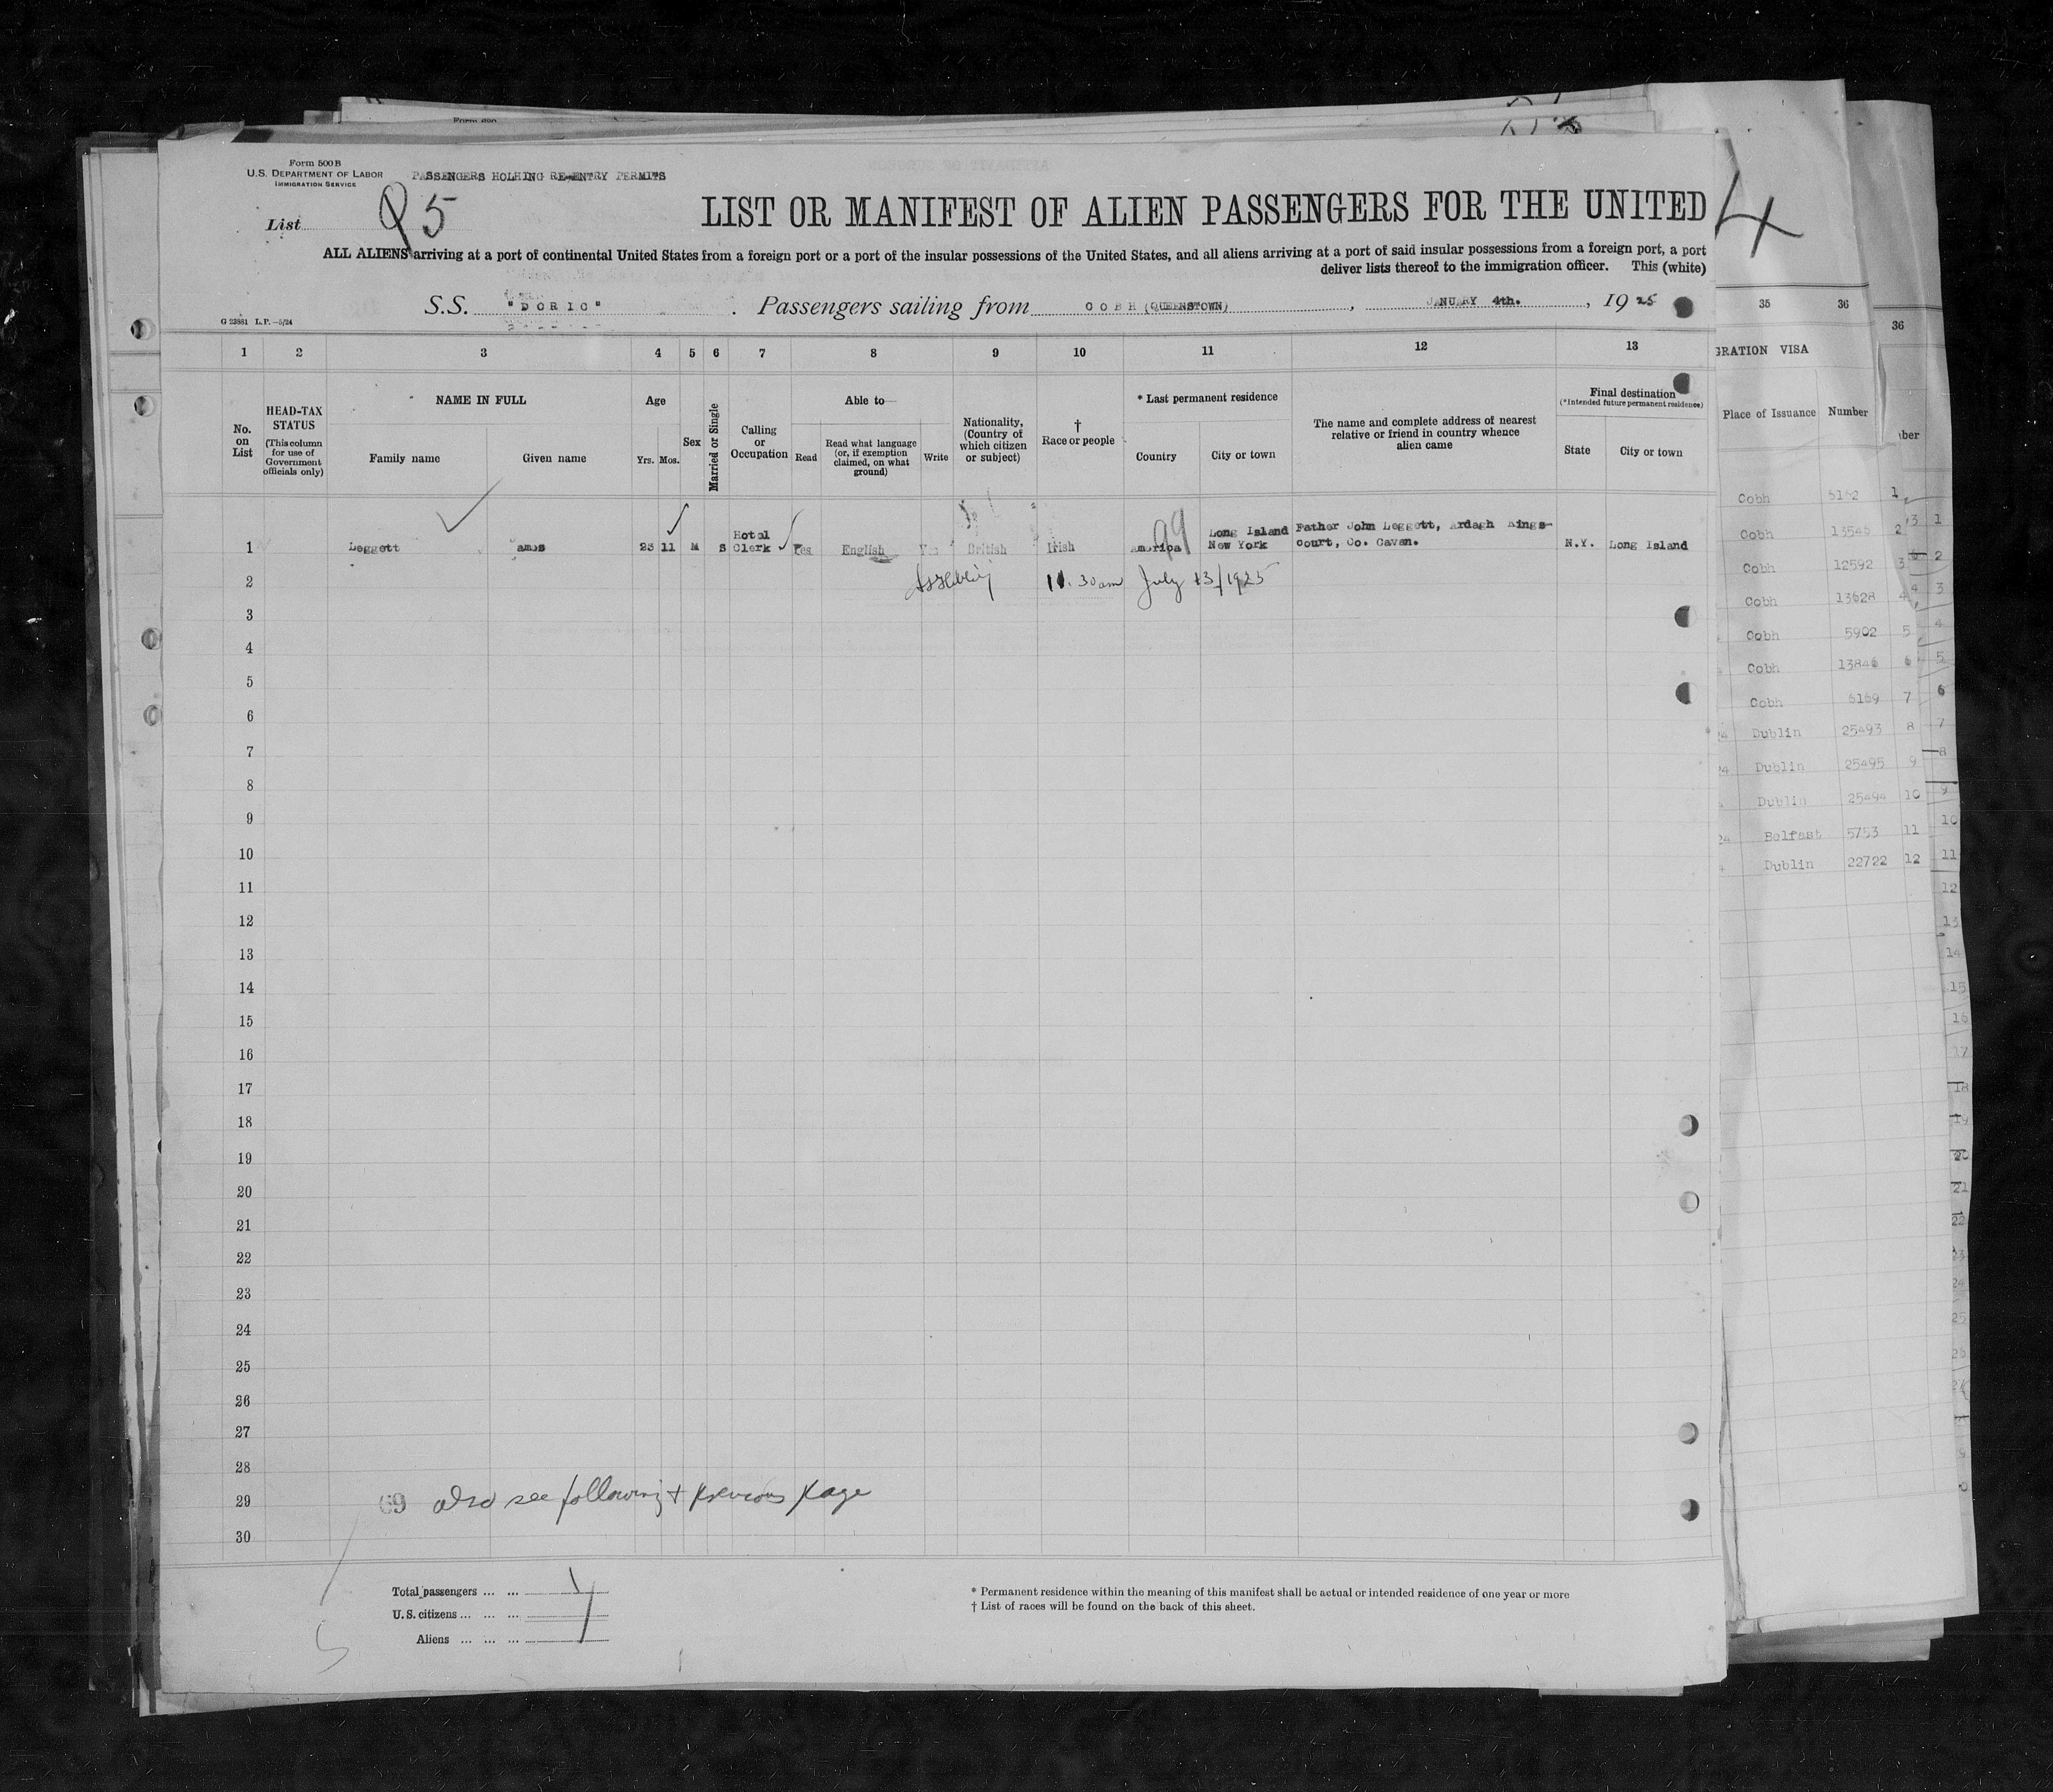 Form 500B
U.S. DEPARTMENT OF LABOR
IMMIGRATION SERVICE
PASSENGERS HOLHING RE-ENTRY PERMITS
List 95
LIST OR MANIFEST OF ALIEN PASSENGERS FOR THE UNITED
4
ALL ALIENS arriving at a port of continental United States from a foreign port or a port of the insular possessions of the United States, and all aliens arriving at a port of said insular possessions from a foreign port, a port
deliver lists thereof to the immigration officer. This (white)
S.S. "DORIC" . Passengers sailing from COBH (QUEENSTOWN) , JANUARY 4th. , 19 25
G 23881 L.P.—5/24
1 2 3 4 5 6 7 8 9 10 11 12 13
No. on List
HEAD-TAX STATUS
(This column for use of Government officials only)
NAME IN FULL
Family name
Given name
Age
Yrs. Mos.
Sex
Married or Single
Calling or Occupation
Able to
Read
Read what language (or, if exemption claimed, on what ground)
Write
Nationality, (Country of which citizen or subject)
† Race or people
* Last permanent residence
Country
City or town
The name and complete address of nearest relative or friend in country whence alien came
Final destination
(*Intended future permanent residence)
State
City or town
1 Leggett ames 23 11 M S Hotel Clerk Yes English Yes British Irish America 99 Long Island New York Father John Leggett, Ardagh Kings-court, Co. Cavan. N.Y. Long Island
2 11.30am July 13/1925
3
4
5
6
7
8
9
10
11
12
13
14
15
16
17
18
19
20
21
22
23
24
25
26
27
28
29 69 also see following + previous page
30
Total passengers ... ... 1
U.S. citizens ... ... ...
Aliens ... ... ... 1
* Permanent residence within the meaning of this manifest shall be actual or intended residence of one year or more
† List of races will be found on the back of this sheet.
35 36
GRATION VISA
Place of Issuance Number
Cobh 5152 1
Cobh 13545 2
Cobh 12592 3
Cobh 13628 4
Cobh 5902 5
Cobh 13846 6
Cobh 6169 7
Dublin 25493 8
Dublin 25495 9
Dublin 25494 10
Belfast 5753 11
Dublin 22722 12
36
ber
1
2
3
4
5
6
7
8
9
10
11
12
13
14
15
16
17
18
19
20
21
22
23
24
25
26